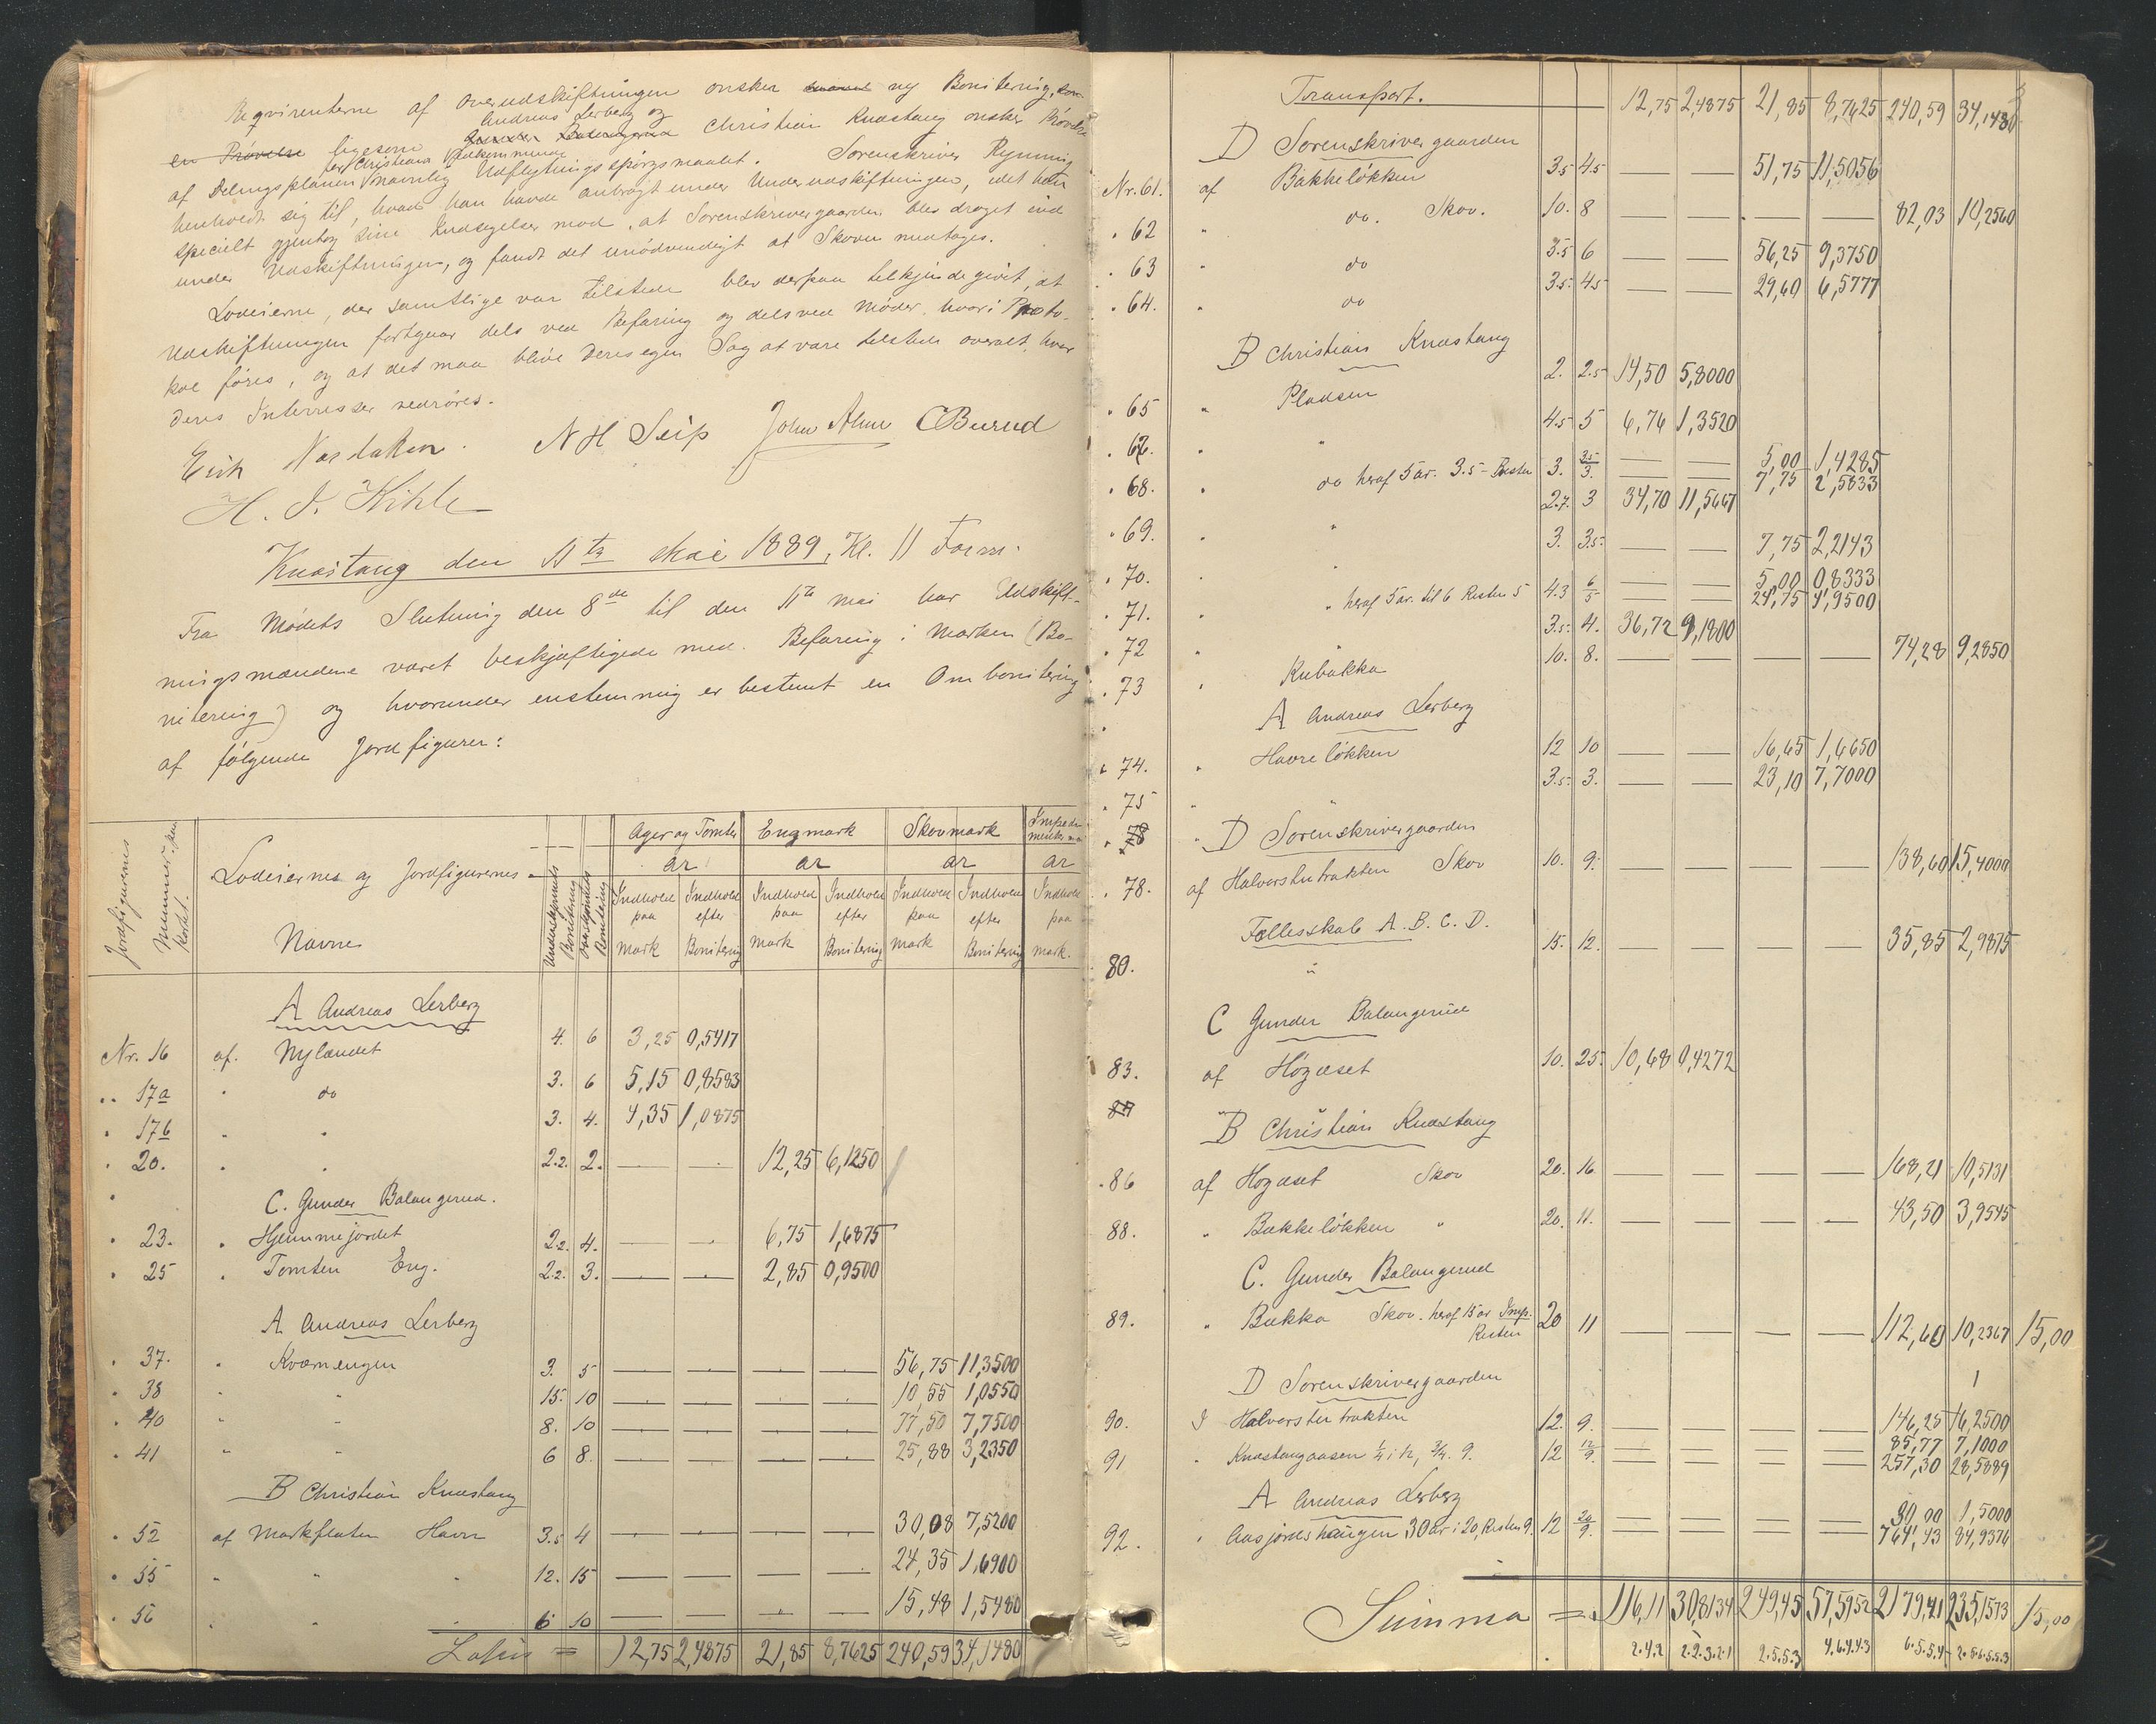 Reqvirenterne af Overudskiftningen ønsker ny Bonitering, som
Andreas Lerberg og
en Prøvelse ligesom Gunder Balangerud Christian Knæstang ønsker Prøvelse
for Christians Vedkommende
af Delingsplanen navnlig Udflytningsspørgsmaalet. Sorenskriver Rynning
henholdt sig til, hvad han havde anbragt under Underudskiftningen, idet han
specielt gjentog sine Indsigelser mod, at Sorenskrivergaarden blev draget ind
under Udskiftningen, og fandt det unødvendigt at Skoven medtages.
Lodeierne, der samtlige var tilstede blev derpaa tilkjendegivet, at
Udskiftningen fortgaar dels ved Befaring og dels ved Møder, hvori Proto-
kol føres, og at det maa blive deres egen Sag at være tilstede overalt, hvor
deres Interesser vedrøres.
Erik Narstaken. N H Seip John Alme C Burud
H. J. Kihle
Knæstang den 11te Mai 1889, Kl. 11 Form.
Fra Mødets Slutning den 8de til den 11te mai har Udskift-
ningsmændene været beskjæftigede med Befaring i Marken (Bo-
nitering) og hvorunder enstemmig er bestemt en Ombonitering
af følgende Jordfigurer:
Jordfigurernes Nummer paa Kortet. Lodeiernes og Jordfigurernes Navne Underskjønnets Bonitering Overskjønnets Bonitering Ager og Tomter Engmark Skovmark Impedimenter m.
ar ar ar ar
Indhold paa mark Indhold efter Bonitering Indhold paa mark Indhold efter Bonitering Indhold paa mark Indhold efter Bonitering Indhold paa mark.
A Andreas Lerberg
Nr. 16 af Nylændet 4. 6 3,25 0,5417
" 17a " do 3. 6 5,15 0,8583
" 17b " " 3. 4. 4,35 1,0875
" 20. " " 2.2. 2. — — 12,25 6,1250
C. Gunder Balangerud.
" 23. " Hjemmejordet 2.2. 4. — — 6,75 1,6875
" 25 " Tomten Eng. 2.2. 3. — — 2,85 0,9500
A Andreas Lerberg
" 37. " Kværnengen 3. 5 — — — — 56,75 11,3500
" 38 " " 15. 10 — — — — 10,55 1,0550
" 40 " " 8. 10 — — — — 77,50 7,7500
" 41 " " 6 8. — — — — 25,88 3,2350
B Christian Knæstang
" 52 af Markfloten Havn 3.5 4 — — — — 30,08 7,5200
" 55 " " " 12. 15 — — — — 24,35 1,6900
" 56 " " " 6 10 — — — — 15,48 1,5480
Latus = 12,75 2,4875 21,85 8,7625 240,59 34,1480
Transport. 12,75 2,4875 21,85 8,7625 240,59 34,1480
D Sorenskrivergaarden
Nr. 61. af Bakkeløkken 3.5 4.5 — — 51,75 11,5056
" 62 " do. Skov. 10. 8 — — — — 82,03 10,2560
" 63 " do 3.5 6 — — 56,25 9,3750
" 64. " do 3.5. 4.5 — — 29,60 6,5777
B Christian Knæstang
" 65 " Pladsen 2. 2.5 14,50 5,8000
" 67. " " 4.5 5 6,76 1,3520
" 68. " do heraf 5 ar. 3.5 - Resten 3. 3.5 — — 5,00 1,4285
3. — — 7,75 2,5833
" 69. " " 2.7. 3 34,70 11,5667
" 70. " " 3. 3.5. — — 7,75 2,2143
" 71. " " heraf 5 ar. til 6 Resten 5 4.3 6 — — 5,00 0,8333
5 — — 24,75 4,9500
" 72 " " 3.5. 4. 36,72 9,1800
" 73 " Kubakka 10. 8. — — — — 74,28 9,2850
A Andreas Lerberg
" 74. " Havreløkken 12 10 — — 16,65 1,6650
" 75 " " 3.5. 3. — — 23,10 7,7000
" 78 " D Sorenskrivergaarden
" 78. af Halvorstutrakten Skov 10. 9. — — — — 138,60 15,4000
Fællesskab A. B. C. D.
80. " 15. 12. — — — — 35,85 2,9875
C Gunder Balangerud
83. af Høgaset 10. 25. 10,68 0,4272
84 B Christian Knæstang
" 86 af Høgaset Skov 20. 16 — — — — 168,21 10,5131
88. " Bakkeløkken " 20. 11. — — — — 43,50 3,9545
C. Gunder Balangerud
89. " Bakka Skov. heraf 15 ar Imp. Resten 20 11 — — — — 112,60 10,2367 15,00
D Sorenskrivergaarden
90. I Halvorstutrakten 12. 9. — — — — 146,25 16,2500
91 " Knæstangaasen ¼ i 12, ¾. 9. 12 12 — — — — 85,77 7,1000
9. — — — — 257,30 28,5889
A Andreas Lerberg
92. " Aasjordshaugen 30 ar i 20, Resten 9. 12 20 — — — — 30,00 1,5000
9. — — — — 764,43 84,9376
Summa = 116,11 30,8134 249,45 57,5952 2179,41 235,1573 15,00
2.4.2 2.2.3.2.1 2.5.5.3 4.6.4.4.3 6.5.5.4 2.8.6.5.5.3